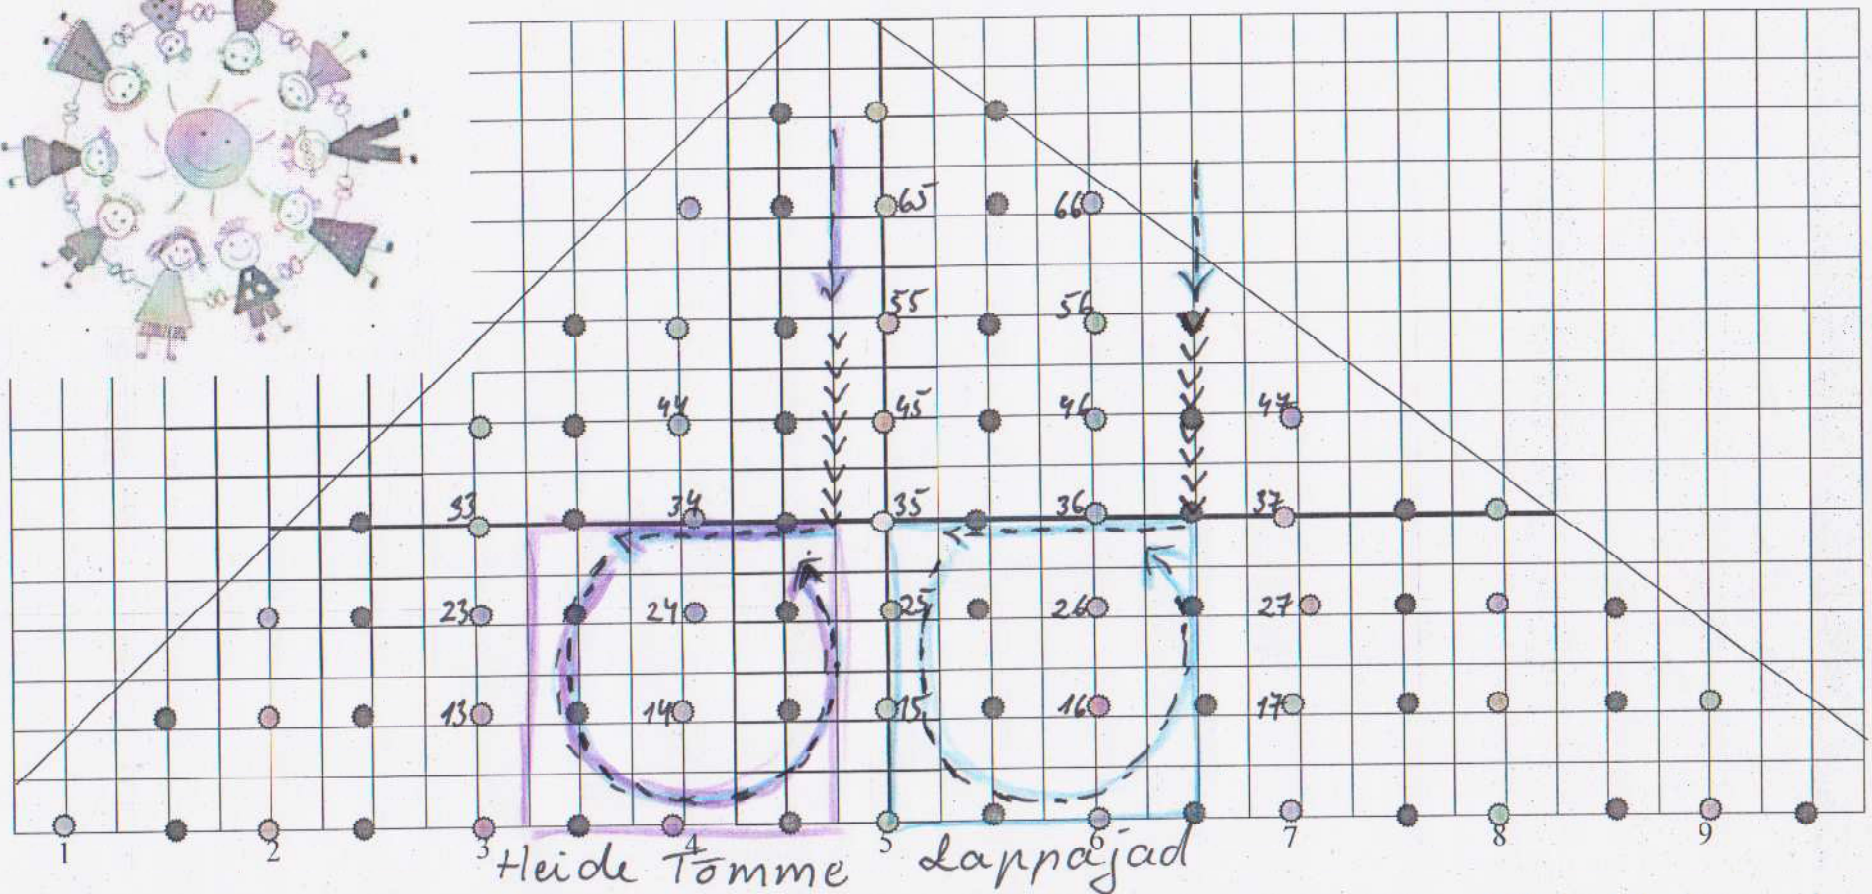 65 66
55 56
44 45 46 47
33 34 35 36 37
23 24 25 26 27
13 14 15 16 17
1 2 3 4 5 6 7 8 9
Heide Tõmme Lappajad